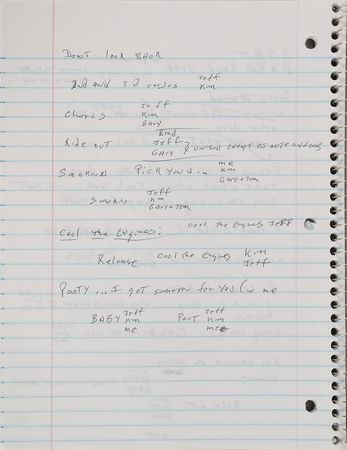 Don't look back
2nd and 3rd verses Jeff
Kim
Jeff
Chorus Kim
Gary
Brad
Ride out Jeff
Gary } unison except on note and end
me
Smokin Pick you up.. Kim
Gary + Tom
Jeff
Smokin Kim
Gary + Tom
Cool the Engines: Cool the Engines Jeff
Release Cool the Engines Kim
Jeff
Party ... I got somethn for you (w me
Jeff Jeff
BABY Kim Part Kim
me me